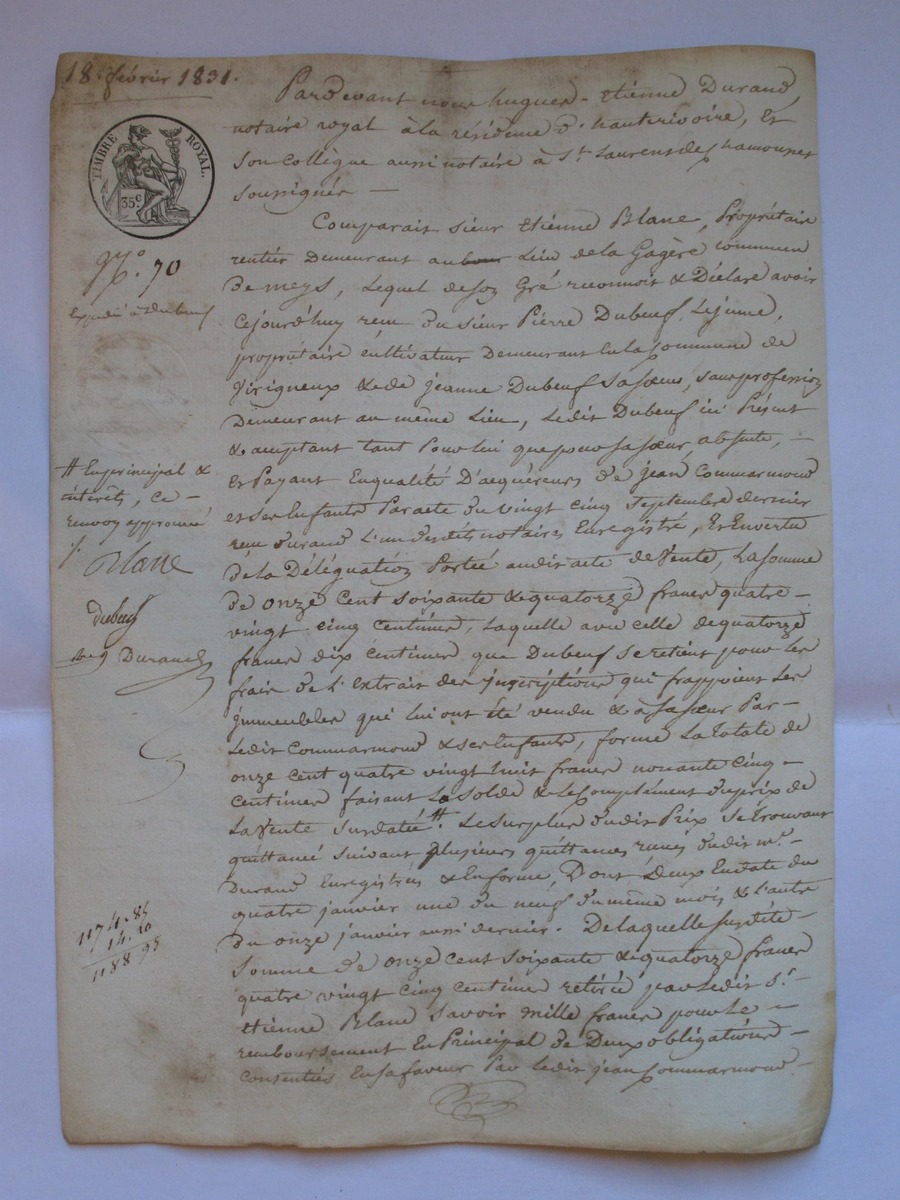 18. février 1831.
TIMBRE ROYAL.
35c
No. 70
Expédié à Dubeuf
Pardevant nous hugues-etienne Durand,
notaire royal à la résidence d'hauterivoire, Et
Son collègue aussi notaire à St. Laurent de Chamousset
soussignés —
Comparait Sieur etienne Blanc, Propriétaire
rentier Demeurant au Lieu de la Gagère commune
De meys, Lequel de son Gré reconnoit & Déclare avoir
Cejourd'huy reçu du sieur Pierre Dubeuf Lejeune,
propriétaire cultivateur Demeurant en la Commune de
Virigneux & de jeanne Dubeuf sa soeur, sans profession
Demeurant au même Lieu, Ledit Dubeuf ici Présent
& acceptant tant Pour lui que pour sa soeur absente, —
et Payant En qualité D'acquéreurs de jean Commarmond
et ses Enfants Par acte du vingt cinq Septembre dernier
reçu durand L'un desdits notaires Enregistré, Et En vertu
de la Délégation Portée audit acte de Vente, La somme
de onze cent soixante & quatorze francs quatre-
vingt cinq centimes, Laquelle avec celle de quatorze
francs dix centimes que Dubeuf se retient pour les
frais de L'Extrait des inscriptions qui frappoient les
immeubles qui lui ont été vendu & à sa soeur Par
Ledit Commarmond & ses Enfants, forme La totale de
onze cent quatre vingt huit francs nonante cinq-
centimes faisant Le solde & le Complément du prix de
La vente susdatée #. Le surplus dudit Prix se trouvant
quittancé suivant plusieurs quittances reçues dudit me.
Durand Enregistrées & En forme Dont Deux En date du
quatre janvier une du neuf du même mois & L'autre
du onze janvier aussi dernier. De laquelle susdite
Somme de onze cent soixante & quatorze francs
quatre vingt cinq centimes retirée par Ledit Sr.
etienne Blanc Savoir mille francs pour Le —
remboursement En Principal de Deux obligations
Consenties En sa faveur Par Ledit jean Commarmond
# En principal &
intérêts, ce
renvoy approuvé
Blanc
dubeuf
Durand
1174-85
14.10
1188 95